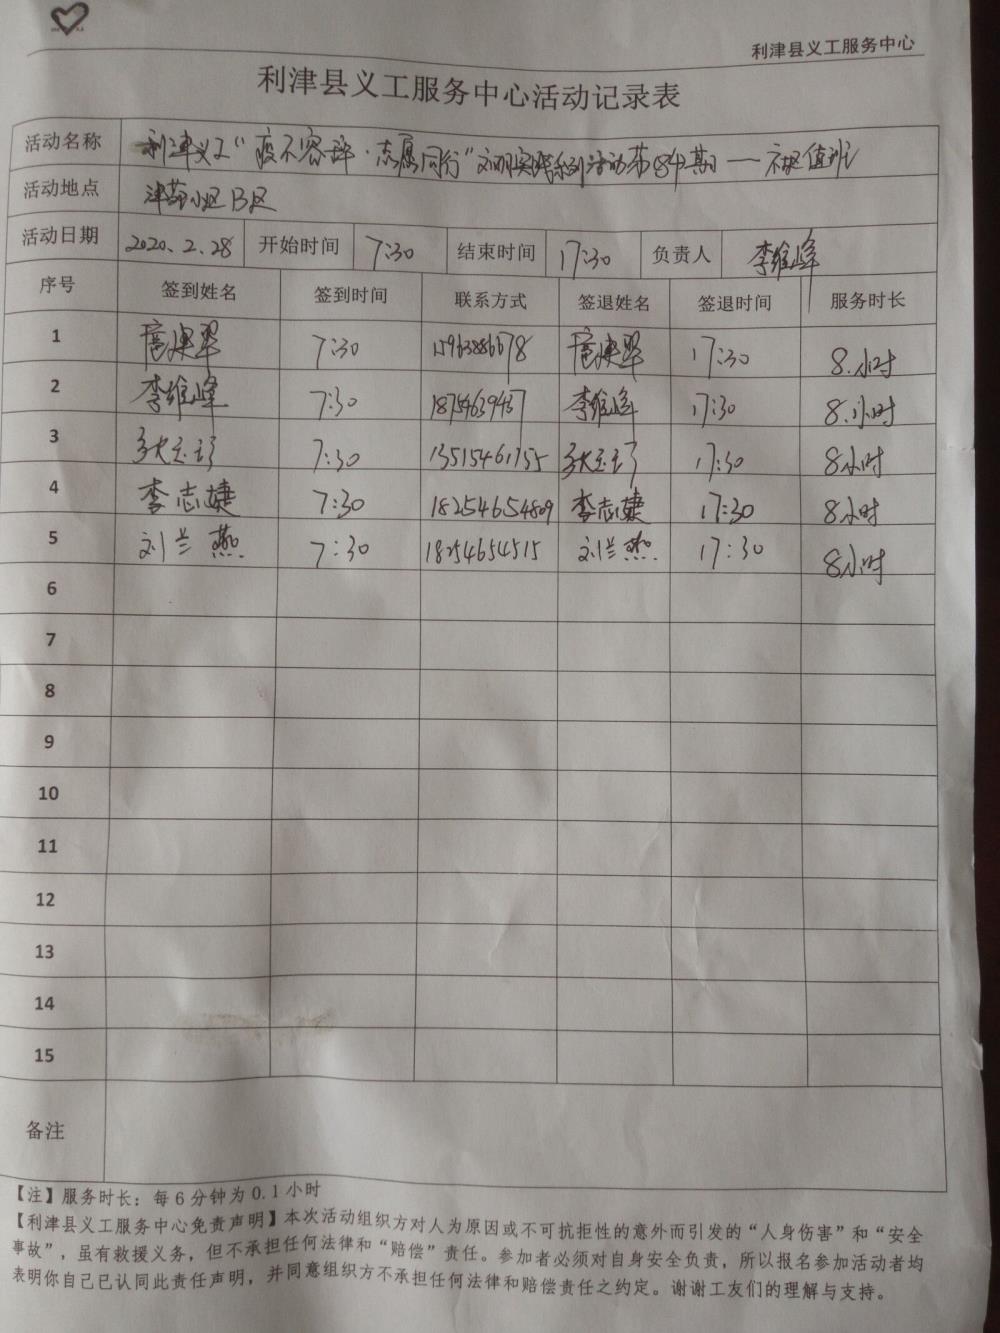 利津县义工服务中心
利津县义工服务中心活动记录表
活动名称 利津义工“疫不容辞·志愿同行”文明实践系列活动第 期——社区值班
活动地点 津苑小区B区
活动日期 2020.2.28 开始时间 7:30 结束时间 17:30 负责人 李维峰
序号 签到姓名 签到时间 联系方式 签退姓名 签退时间 服务时长
1 7:30 15963886678 17:30 8.小时
2 李维峰 7:30 18754639437 李维峰 17:30 8.小时
3 7:30 13515461755 17:30 8小时
4 李志婕 7:30 18254654809 李志婕 17:30 8小时
5 刘兰燕 7:30 18254654515 刘兰燕 17:30 8小时
6
7
8
9
10
11
12
13
14
15
备注
【注】服务时长：每6分钟为0.1小时
【利津县义工服务中心免责声明】本次活动组织方对人为原因或不可抗拒性的意外而引发的“人身伤害”和“安全
事故”，虽有救援义务，但不承担任何法律和“赔偿”责任。参加者必须对自身安全负责，所以报名参加活动者均
表明你自己已认同此责任声明，并同意组织方不承担任何法律和赔偿责任之约定。谢谢工友们的理解与支持。